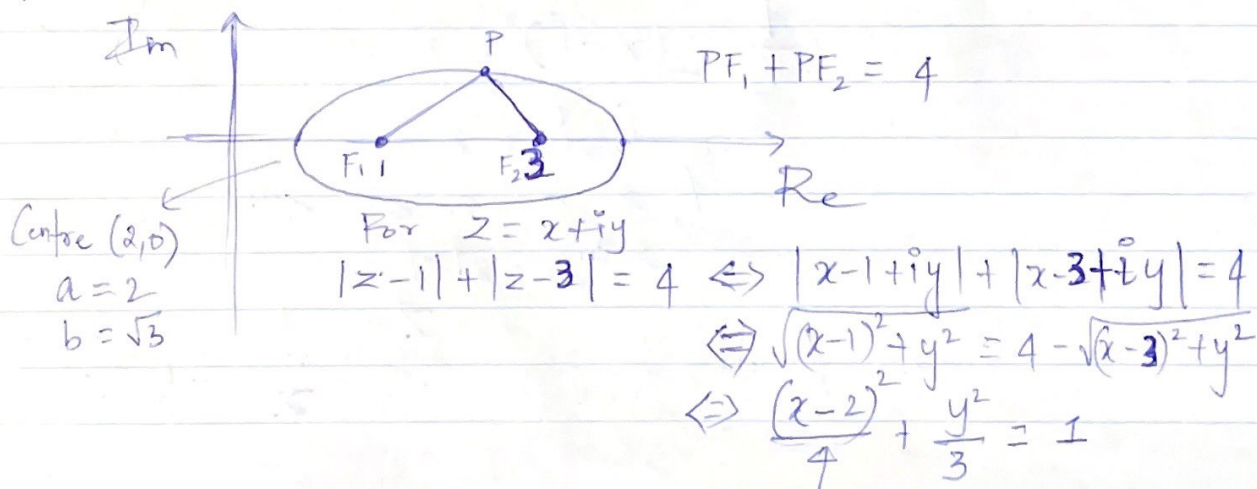 Im
P
PF₁ + PF₂ = 4
F₁ 1
F₂ 3
Re
Centre (2,0)
a = 2
b = √3
For z = x+iy
|z-1| + |z-3| = 4 ⇔ |x-1+iy| + |x-3+iy| = 4
⇔ √((x-1)²+y²) = 4 - √((x-3)²+y²)
⇔ (x-2)²/4 + y²/3 = 1